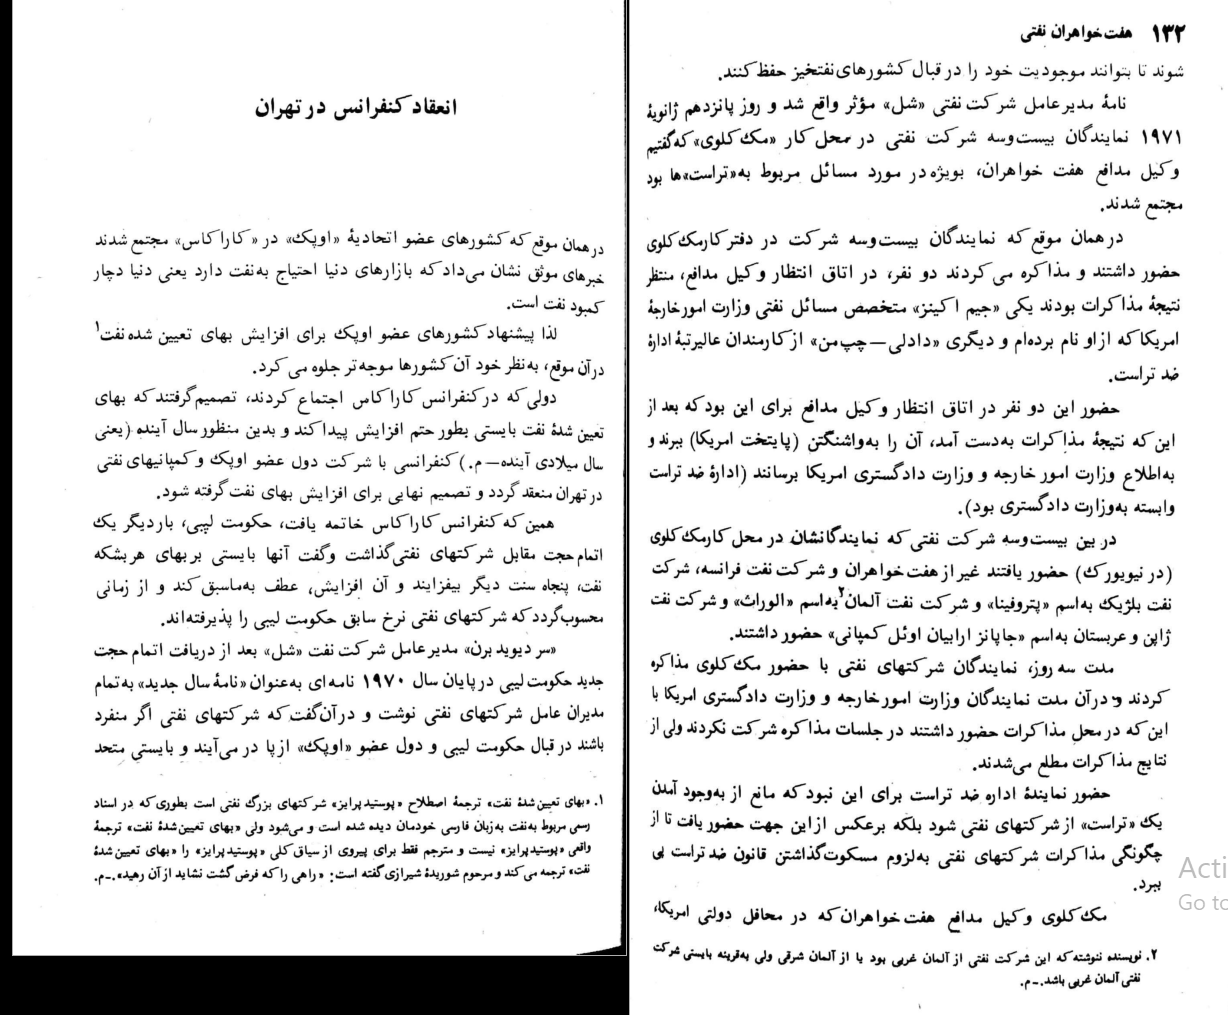 انعقاد کنفرانس در تهران
در همان موقع که کشورهای عضو اتحادیهٔ «اوپک» در «کاراکاس» مجتمع شدند
خبرهای موثق نشان می‌داد که بازارهای دنیا احتیاج به‌نفت دارد یعنی دنیا دچار
کمبود نفت است.
لذا پیشنهاد کشورهای عضو اوپک برای افزایش بهای تعیین شده نفت۱
در آن موقع، به‌نظر خود آن کشورها موجه‌تر جلوه می‌کرد.
دولی که در کنفرانس کاراکاس اجتماع کردند، تصمیم گرفتند که بهای
تعیین شدهٔ نفت بایستی بطور حتم افزایش پیدا کند و بدین منظور سال آینده (یعنی
سال میلادی آینده – م.) کنفرانسی با شرکت دول عضو اوپک و کمپانیهای نفتی
در تهران منعقد گردد و تصمیم نهایی برای افزایش بهای نفت گرفته شود.
همین که کنفرانس کاراکاس خاتمه یافت، حکومت لیبی، بار دیگر یک
اتمام حجت مقابل شرکتهای نفتی گذاشت و گفت آنها بایستی بر بهای هر بشکه
نفت، پنجاه سنت دیگر بیفزایند و آن افزایش، عطف به‌ماسبق کند و از زمانی
محسوب گردد که شرکتهای نفتی نرخ سابق حکومت لیبی را پذیرفته‌اند.
«سر دیوید برن» مدیر عامل شرکت نفت «شل» بعد از دریافت اتمام حجت
جدید حکومت لیبی در پایان سال ۱۹۷۰ نامه‌ای به‌عنوان «نامهٔ سال جدید» به تمام
مدیران عامل شرکتهای نفتی نوشت و در آن گفت که شرکتهای نفتی اگر منفرد
باشند در قبال حکومت لیبی و دول عضو «اوپک» از پا در می‌آیند و بایستی متحد
۱. «بهای تعیین شدهٔ نفت» ترجمهٔ اصطلاح «پوستید پرایز» شرکتهای بزرگ نفتی است بطوری که در اسناد
رسمی مربوط به‌نفت به‌زبان فارسی خودمان دیده شده است و می‌شود ولی «بهای تعیین شدهٔ نفت» ترجمهٔ
واقعی «پوستید پرایز» نیست و مترجم فقط برای پیروی از سیاق کلی «پوستید پرایز» را «بهای تعیین شدهٔ
نفت» ترجمه می‌کند و مرحوم شوریدهٔ شیرازی گفته است: «راهی را که فرض گشت نشاید از آن رهید».-م.
۱۳۲ هفت خواهران نفتی
شوند تا بتوانند موجودیت خود را در قبال کشورهای نفتخیز حفظ کنند.
نامهٔ مدیر عامل شرکت نفتی «شل» مؤثر واقع شد و روز پانزدهم ژانویهٔ
۱۹۷۱ نمایندگان بیست‌وسه شرکت نفتی در محل کار «مک کلوی» که گفتیم
وکیل مدافع هفت خواهران، بویژه در مورد مسائل مربوط به «تراست»ها بود
مجتمع شدند.
در همان موقع که نمایندگان بیست‌وسه شرکت در دفتر کار مک کلوی
حضور داشتند و مذاکره می‌کردند دو نفر، در اتاق انتظار وکیل مدافع، منتظر
نتیجهٔ مذاکرات بودند یکی «جیم اکینز» متخصص مسائل نفتی وزارت امور خارجهٔ
امریکا که از او نام برده‌ام و دیگری «دادلی–چپ‌من» از کارمندان عالیرتبهٔ ادارهٔ
ضد تراست.
حضور این دو نفر در اتاق انتظار وکیل مدافع برای این بود که بعد از
این که نتیجهٔ مذاکرات به‌دست آمد، آن را به‌واشنگتن (پایتخت امریکا) ببرند و
به‌اطلاع وزارت امور خارجه و وزارت دادگستری امریکا برسانند (ادارهٔ ضد تراست
وابسته به‌وزارت دادگستری بود).
در بین بیست‌وسه شرکت نفتی که نمایندگانشان در محل کار مک کلوی
(در نیویورک) حضور یافتند غیر از هفت خواهران و شرکت نفت فرانسه، شرکت
نفت بلژیک به‌اسم «پتروفینا» و شرکت نفت آلمان۲ به‌اسم «الوراث» و شرکت نفت
ژاپن و عربستان به‌اسم «جاپانز ارابیان اوئل کمپانی» حضور داشتند.
مدت سه روز، نمایندگان شرکتهای نفتی با حضور مک کلوی مذاکره
کردند و در آن مدت نمایندگان وزارت امور خارجه و وزارت دادگستری امریکا با
این که در محل مذاکرات حضور داشتند در جلسات مذاکره شرکت نکردند ولی از
نتایج مذاکرات مطلع می‌شدند.
حضور نمایندهٔ اداره ضد تراست برای این نبود که مانع از به‌وجود آمدن
یک «تراست» از شرکتهای نفتی شود بلکه برعکس از این جهت حضور یافت تا از
چگونگی مذاکرات شرکتهای نفتی به‌لزوم مسکوت گذاشتن قانون ضد تراست پی
ببرد.
مک کلوی وکیل مدافع هفت خواهران که در محافل دولتی امریکا،
۲. نویسنده ننوشته که این شرکت نفتی از آلمان غربی بود یا از آلمان شرقی ولی به‌قرینه بایستی شرکت
نفتی آلمان غربی باشد.-م.
Acti
Go to